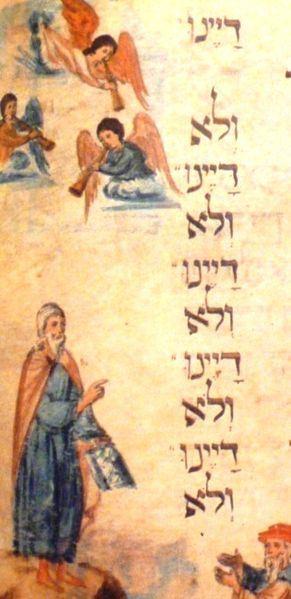 דַיֵינוּ
וְלֹא
דַיֵינוּ
וְלֹא
דַיֵינוּ
וְלֹא
דַיֵינוּ
וְלֹא
דַיֵינוּ
וְלֹא